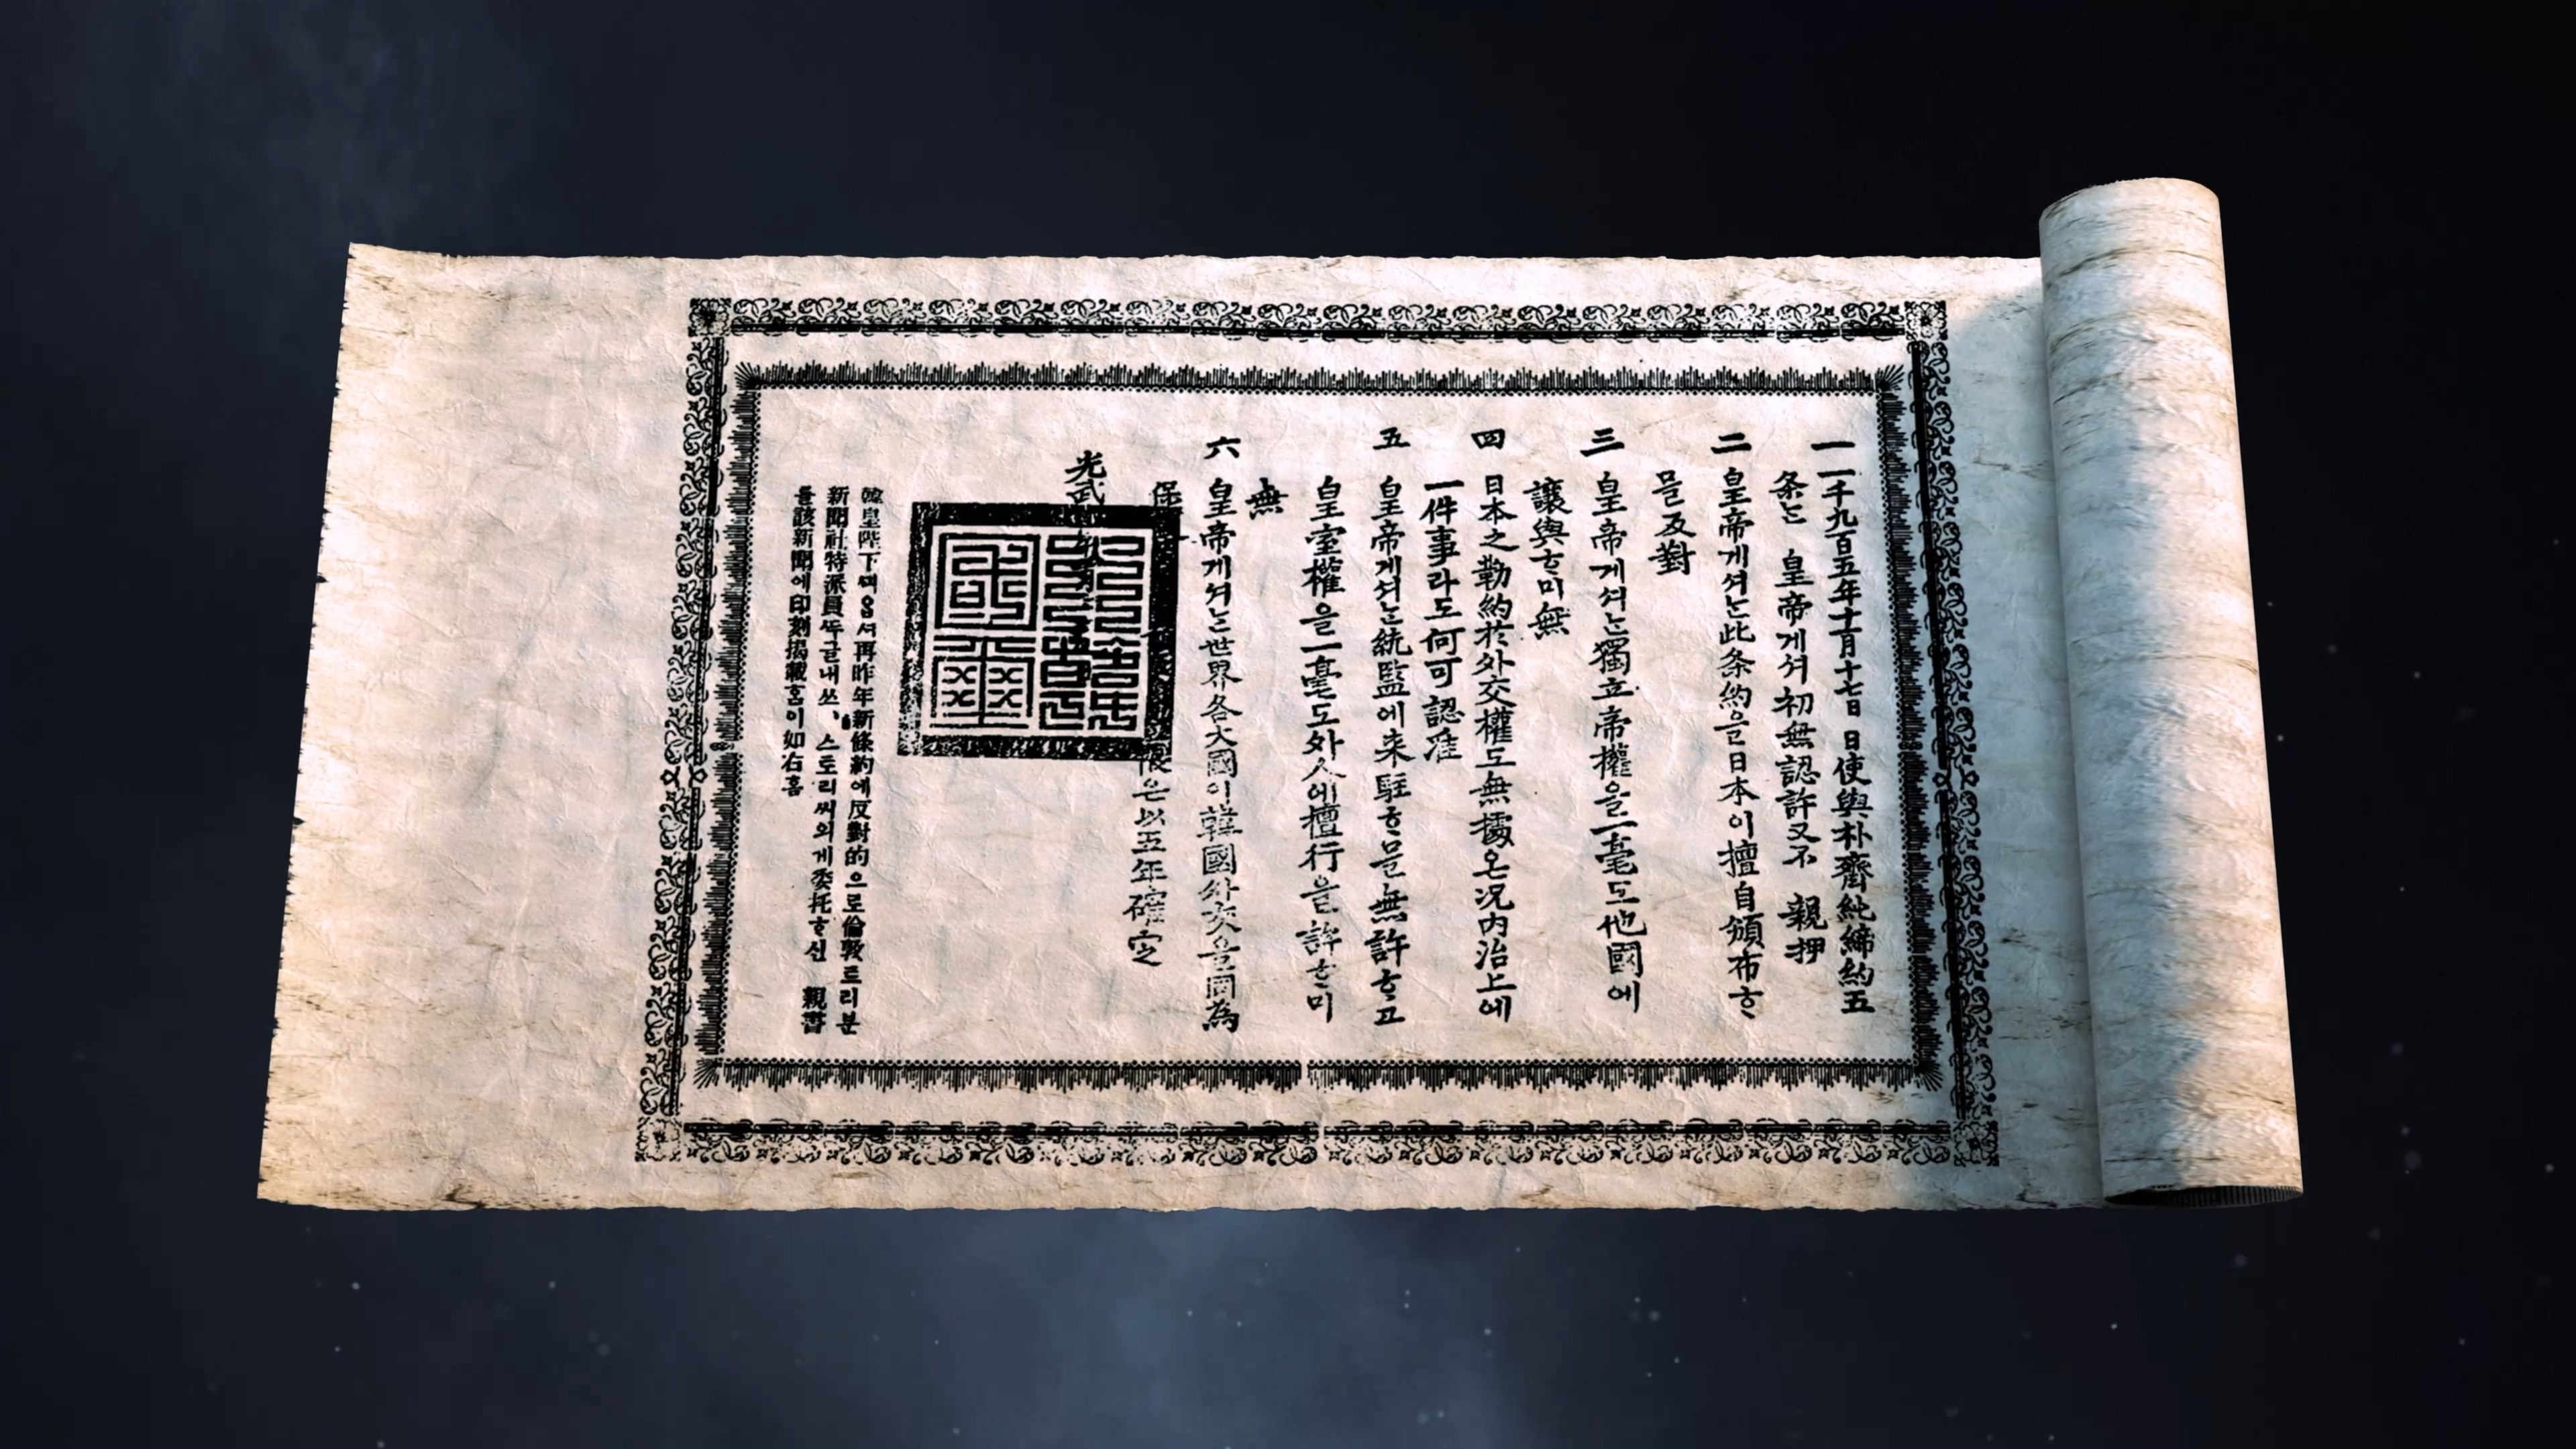 一 一千九百五年十一月十七日 日使與朴齊純締約五
条는 皇帝게셔 初無認許又不 親押
二 皇帝게셔는此条約을日本이擅自頒布ᄒᆞ
믈反對
三 皇帝게셔는獨立帝權을一毫도他國에
讓與ᄒᆞ미無
四 日本之勒約於外交權도無據온況內治上에
一件事라도何可認准
五 皇帝게셔는統監에来駐ᄒᆞ믈無許ᄒᆞ고
皇室權을一毫도外人에擅行을許ᄒᆞ미
無
六 皇帝게셔는世界各大國이韓國外交을同為
保 限은以五年確定
光武
韓皇陛下ᄭᅴ옵셔再昨年新條約에反對的으로倫敦트리분
新聞社特派員ᄯᅮ글내쓰、스토리씨의게委托ᄒᆞ신 親書
를該新聞에印刻揭載홈이如右홈